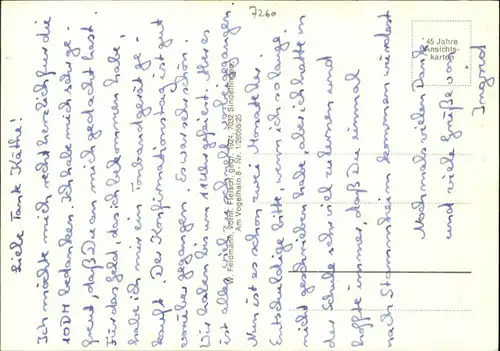 7260
Liebe Tante Käthe!
Ich möchte mich recht herzlich für die
10 DM bedanken. Ich habe mich sehr ge-
freut, daß Du an mich gedacht hast.
Für das Geld, das ich bekommen habe,
habe ich mir ein Tonbandgerät ge-
kauft. Der Konfirmationstag ist gut
vorüber gegangen. Es war sehr schön.
Wir haben bis um 11 Uhr gefeiert. Aber es
ist alles viel zu schnell vorbei gegangen.
Nun ist es schon zwei Monate her.
Entschuldige bitte, wenn ich so lange
nicht geschrieben habe, aber ich hatte in
der Schule sehr viel zu lernen und
hoffte immer, daß Du einmal
nach Stammheim kommen würdest.
Nochmals vielen Dank
und viele Grüße von
Ingrid
W. Feldmann, vorm. Fleisch, gegr. 1924, 7032 Sindelfingen,
Am Vogelhain 8 - Nr.
45 Jahre
Ansichts-
karten